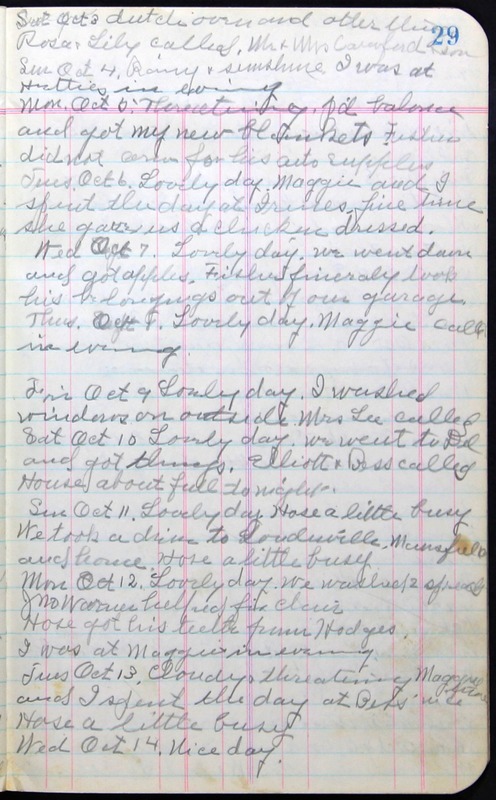 Sat Oct 3 dutch oven and other things
29
Rosa & Lily called, Mr & Mrs Crawford & Son
Sun Oct 4, Rainy & sunshine I was at
Hatties in evening
Mon. Oct 5. Threatening. p'd balance
and got my new blankets Fisher
did not come for his auto supplies
Tues. Oct 6. Lovely day. Maggie and I
spent the day at Irenes, fine time
she gave us a chicken dressed.
Wed Oct 7. Lovely day. we went down
and got apples. Fisher fineraly took
his belongings out of our garage.
Thus. Oct 8. Lovely day. Maggie called
in evening.
Fri Oct 9 Lovely day. I washed
windows on outside Mrs Lee called
Sat Oct 10 Lovely day. we went to
and got things. Elliott & Bess called
House about full tonight.
Sun Oct 11. Lovely day Hose a little busy
We took a drive to Loudonville, Mansfield
and home. Hose a little busy
Mon Oct 12. Lovely day. we washed 2 spreads
Jno Warner helped fix chair
Hose got his teeth from Hodges.
I was at Maggie in evening
Tues Oct 13. Cloudy & threatening Maggie
and I spent the day at Bess' nice
Hose a little busy
Wed Oct 14. Nice day.